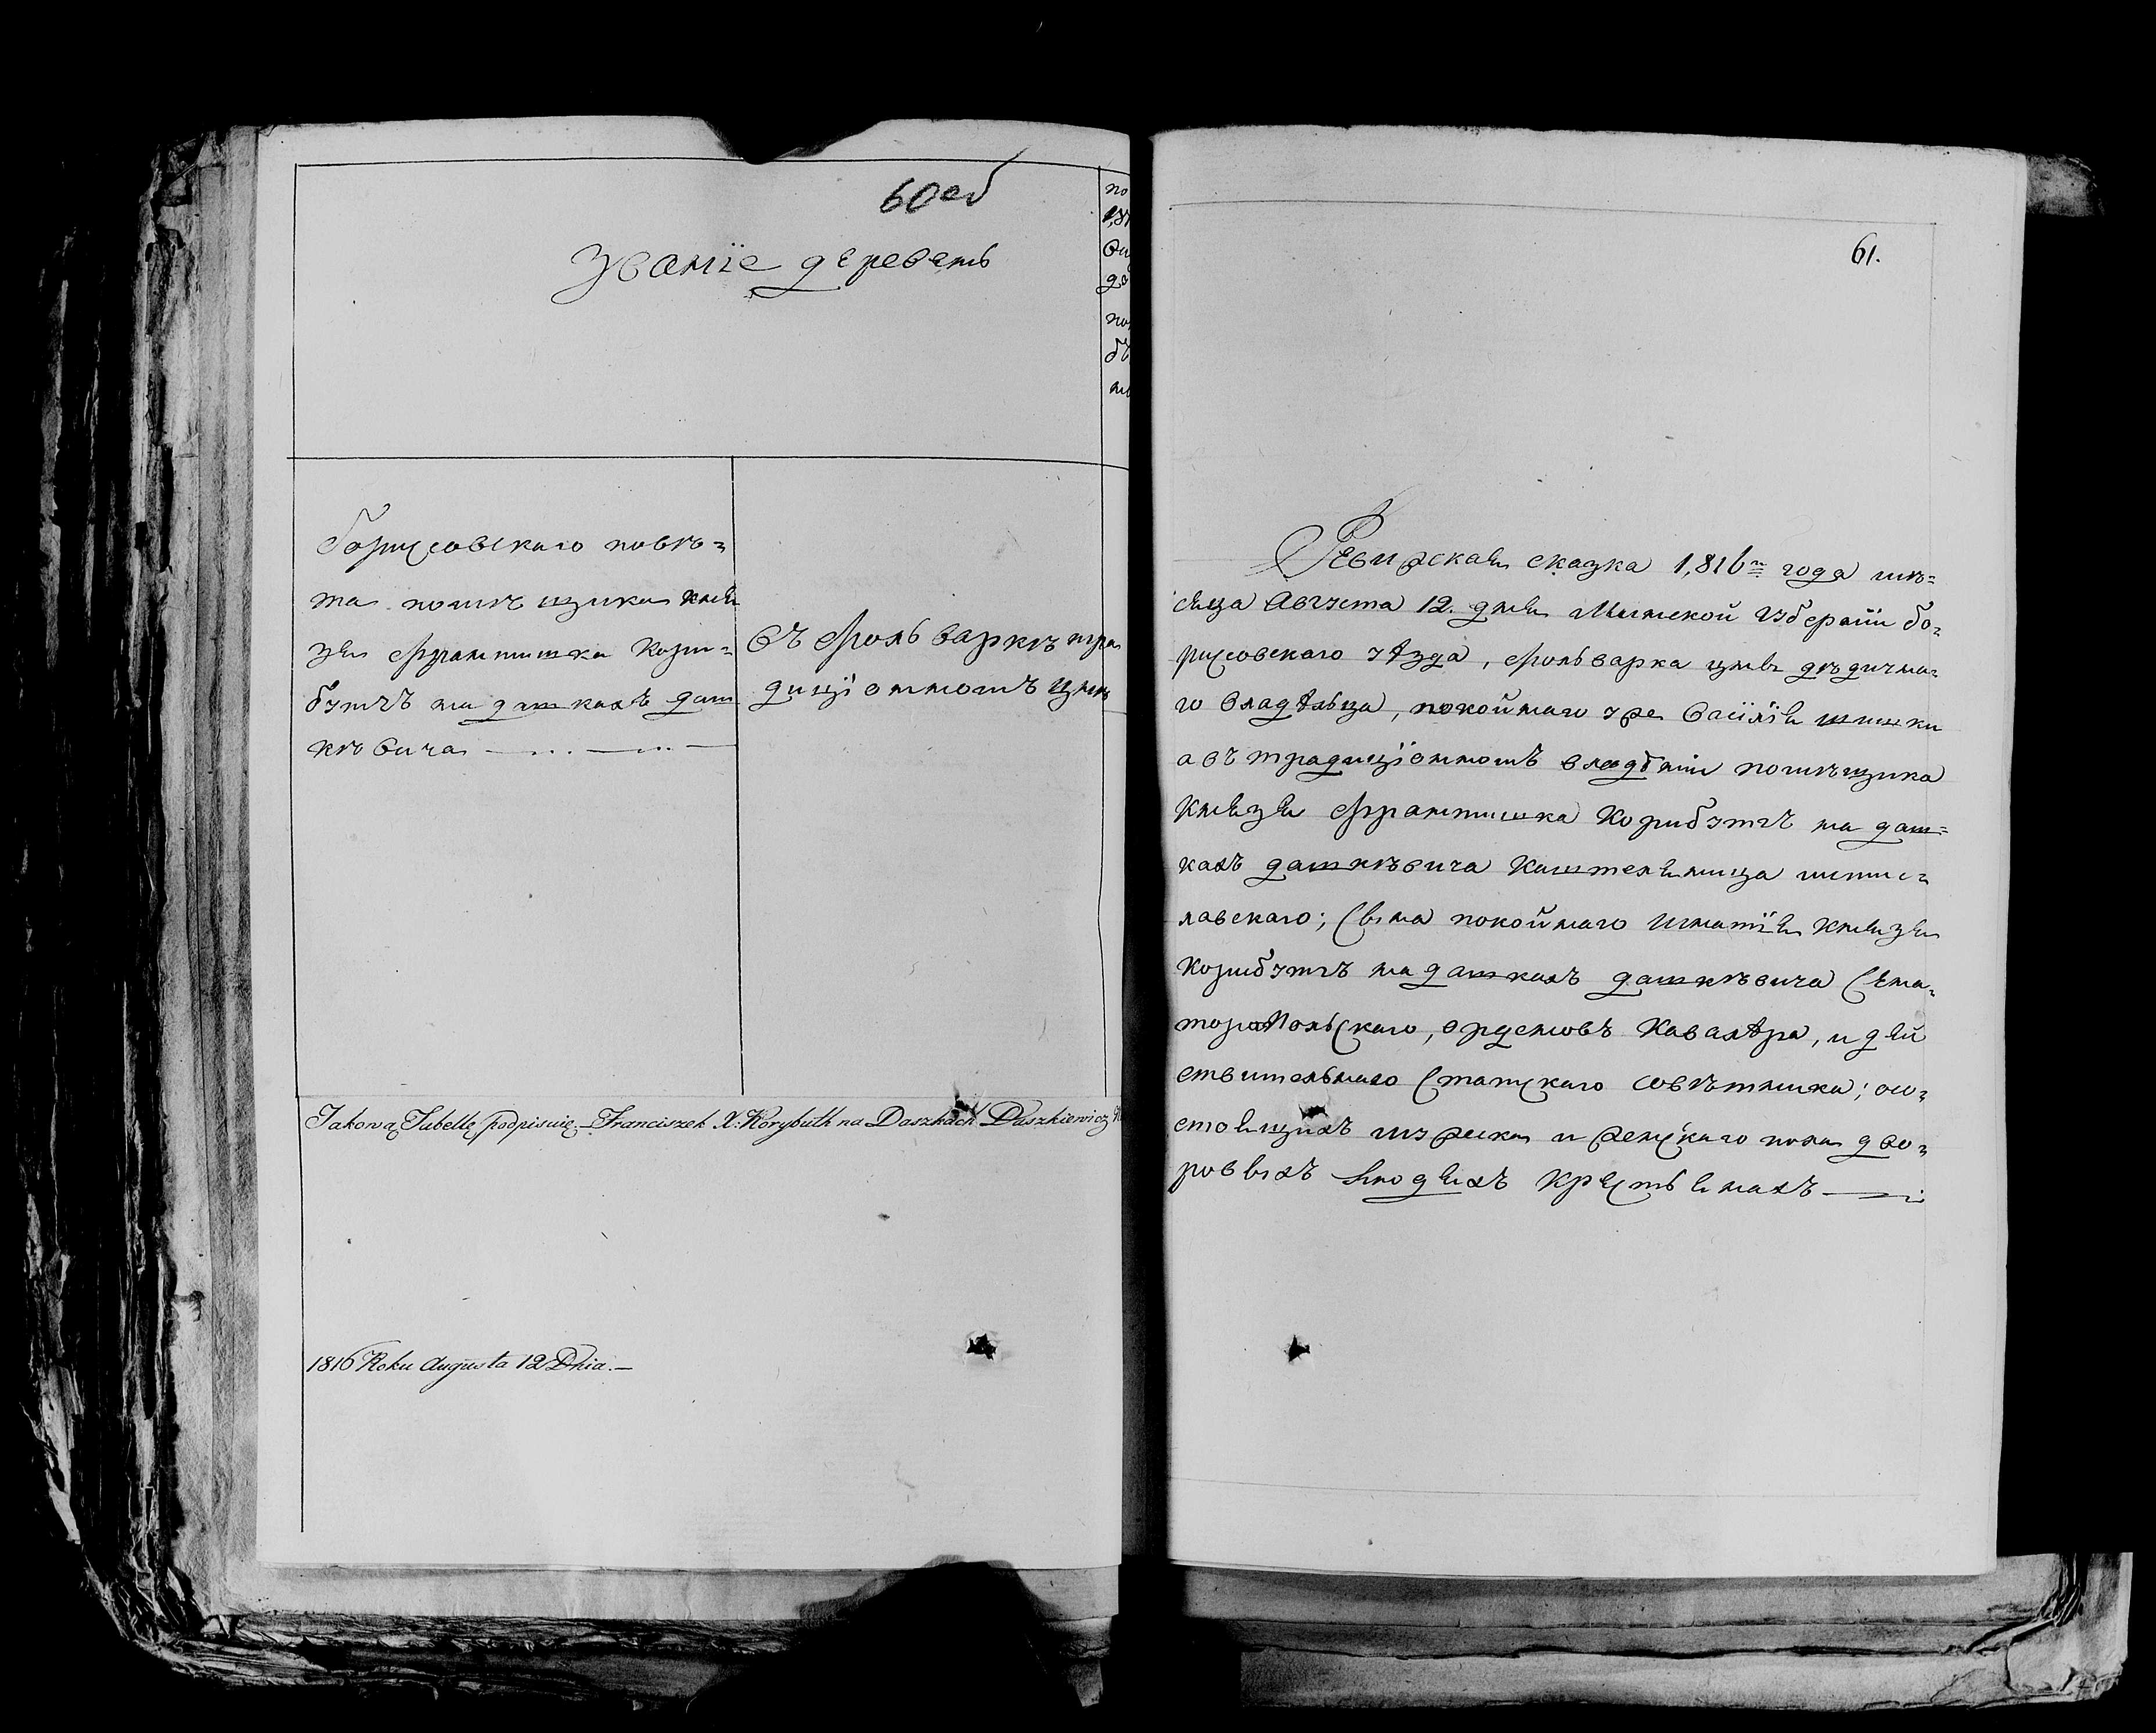 60 об
Званїе деревень
Борисовскаго повѣ=
та помѣщика кня
зя Францишка Кори=
бутъ на дашкахъ даш
кѣвича
въ фольваркѣ тра
диціонномъ Цнѣ
Jakową Tabellę podpisuię Franciszek X: Korybuth na Daszkach Daszkiewicz
1816 Roku Augusta 12 Dnia.
61.
Ревизская сказка 1,816го года мѣ=
сяца Августа 12. дня Минской губернїи бо=
рисовскаго уѣзда, фольварка цны дѣдична=
го владѣльца, покойнаго уже василїя шишки
а въ традицїонномъ владѣнїи помѣщика
Князя Францишка Корибутъ на даш=
кахъ дашкѣвича Каштеляница мстис=
лавскаго; Сына покойнаго Игнатїя Князя
Корибутъ на дашкахъ дашкѣвича Сена=
тора Польскаго, орденовъ Кавалѣра, и дѣй
ствительнаго Статскаго совѣтника; со=
стоящихъ мужеска и женскаго пола дво=
ровыхъ людяхъ Крестьянахъ